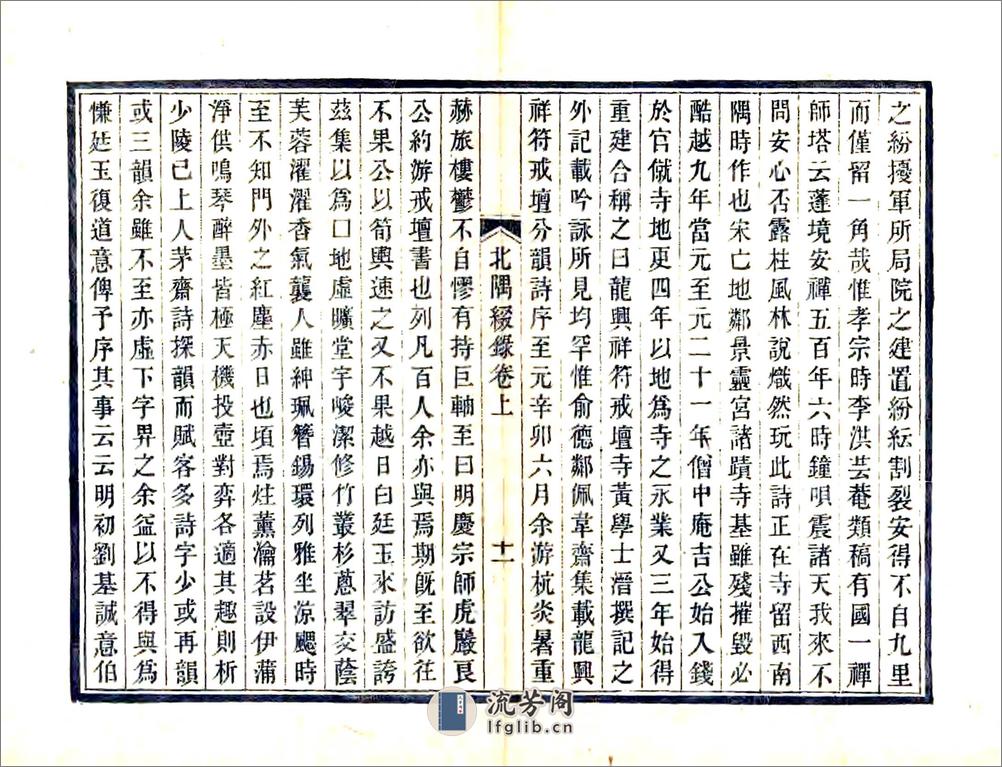 之紛擾軍所局院之建置紛紜割裂安得不自九里
而僅留一角哉惟孝宗時李洪芸菴類稿有國一禪
師塔云蓬境安禪五百年六時鐘唄震諸天我來不
問安心否露柱風林說熾然玩此詩正在寺留西南
隅時作也宋亡地鄰景靈宮諸蹟寺基雖殘摧毀必
酷越九年當元至元二十一年僧中庵吉公始入錢
於官僦寺地更四年以地爲寺之永業又三年始得
重建合稱之曰龍興祥符戒壇寺黃學士溍撰記之
外記載吟詠所見均罕惟俞德鄰佩韋齋集載龍興
祥符戒壇分韻詩序至元辛卯六月余游杭炎暑重
北隅綴錄卷上
十一
赫旅樓鬱不自憀有持巨軸至曰明慶宗師虎巖艮
公約游戒壇書也列凡百人余亦與焉期旣至欲往
不果公以筍輿速之又不果越日白廷玉來訪盛誇
茲集以爲口地虛曠堂宇峻潔修竹叢杉蔥翠交蔭
芙蓉濯濯香氣襲人雖紳珮簪錫環列雅坐凉颸時
至不知門外之紅塵赤日也頃焉炷薰瀹茗設伊蒲
淨供鳴琴醉墨皆極天機投壺對弈各適其趣則析
少陵已上人茅齋詩探韻而賦客多詩字少或再韻
或三韻余雖不至亦虛下字畀之余益以不得與爲
慊廷玉復道意俾予序其事云云明初劉基誠意伯
流芳阁
lfglib.cn